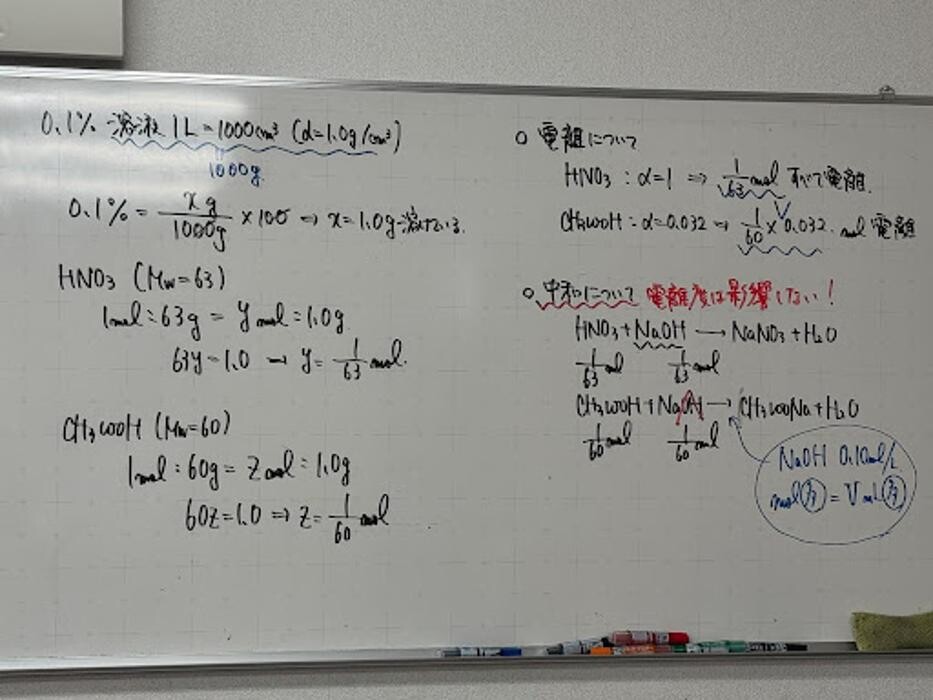 0.1% 溶液 1L = 1000cm³ (d=1.0g/cm³)
1000g
0.1% = xg/1000g × 100 → x = 1.0g 溶けている.
HNO₃ (Mw=63)
1mol : 63g = y mol : 1.0g
63y = 1.0 → y = 1/63 mol.
CH₃COOH (Mw=60)
1mol : 60g = z mol : 1.0g
60z = 1.0 ⇒ z = 1/60 mol
○ 電離について
HNO₃ : α=1 ⇒ 1/63 mol すべて電離.
CH₃COOH : α=0.032 → 1/60 × 0.032. mol 電離
○ 中和について 電離度は影響しない!
HNO₃ + NaOH → NaNO₃ + H₂O
1/63 mol 1/63 mol
CH₃COOH + NaOH → CH₃COONa + H₂O
1/60 mol 1/60 mol
NaOH 0.10mol/L
mol比 = VmL比